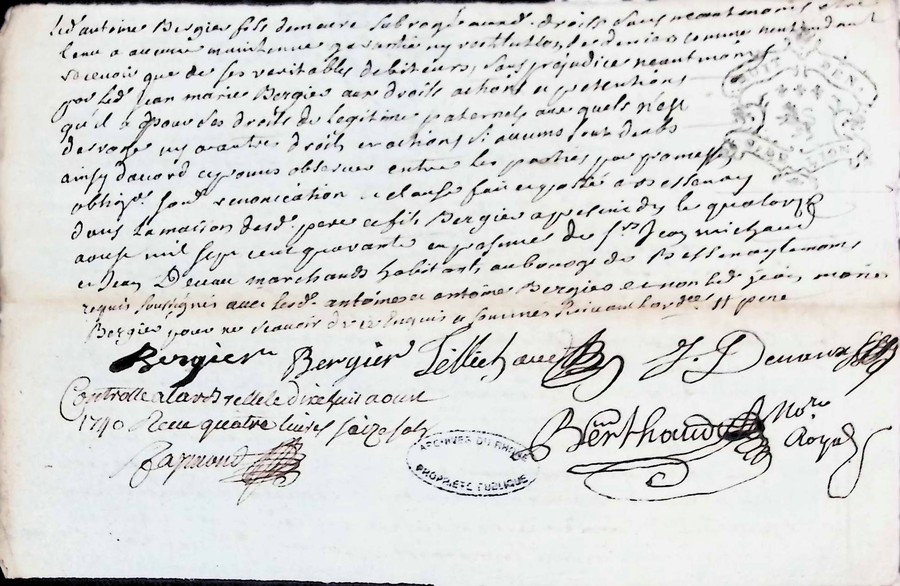 led.t antoine Bergier fils demeure subrogé aux d. droits sans neantmoins estre
tenu a aucune maintenue garentie ny restitution des deniers comme n'entendant
recevoir que de ses veritables debiteurs, sans prejudice neantmoins
par led.t Jean marie Bergier aux droits actions et pretentions
qu'il a pour ses droits de legitime paternels aux quels n'est
desroge ny a autres droits et actions si aucuns sont deubs
ainsy d'accord et promis observer entre les parties par promesse
oblig.on soum.on renonciation et clause fait et passé a Bessenay
dans la maison desd.t pere et fils Bergier apres midy le quatorze
aoust mil sept cent quarante en presence de s.rs Jean michaud
et Jean Devaux marchands habitants au bourg de Bessenay temoins
requis soussignés avec lesd.t antoine et antoine Bergier et non led.t Jean marie
Bergier pour ne scavoir de ce enquis et sommés suivant l'ord.ce
Bergier Bergier J. Devaux
Controlle a Larbresle le dixhuit aoust
1740 Receu quatre livres seize sols
Raymond
Berthaud No.re
Royal
HUIT DEN.
LION
ARCHIVES DU RHÔNE
PROPRIÉTÉ PUBLIQUE